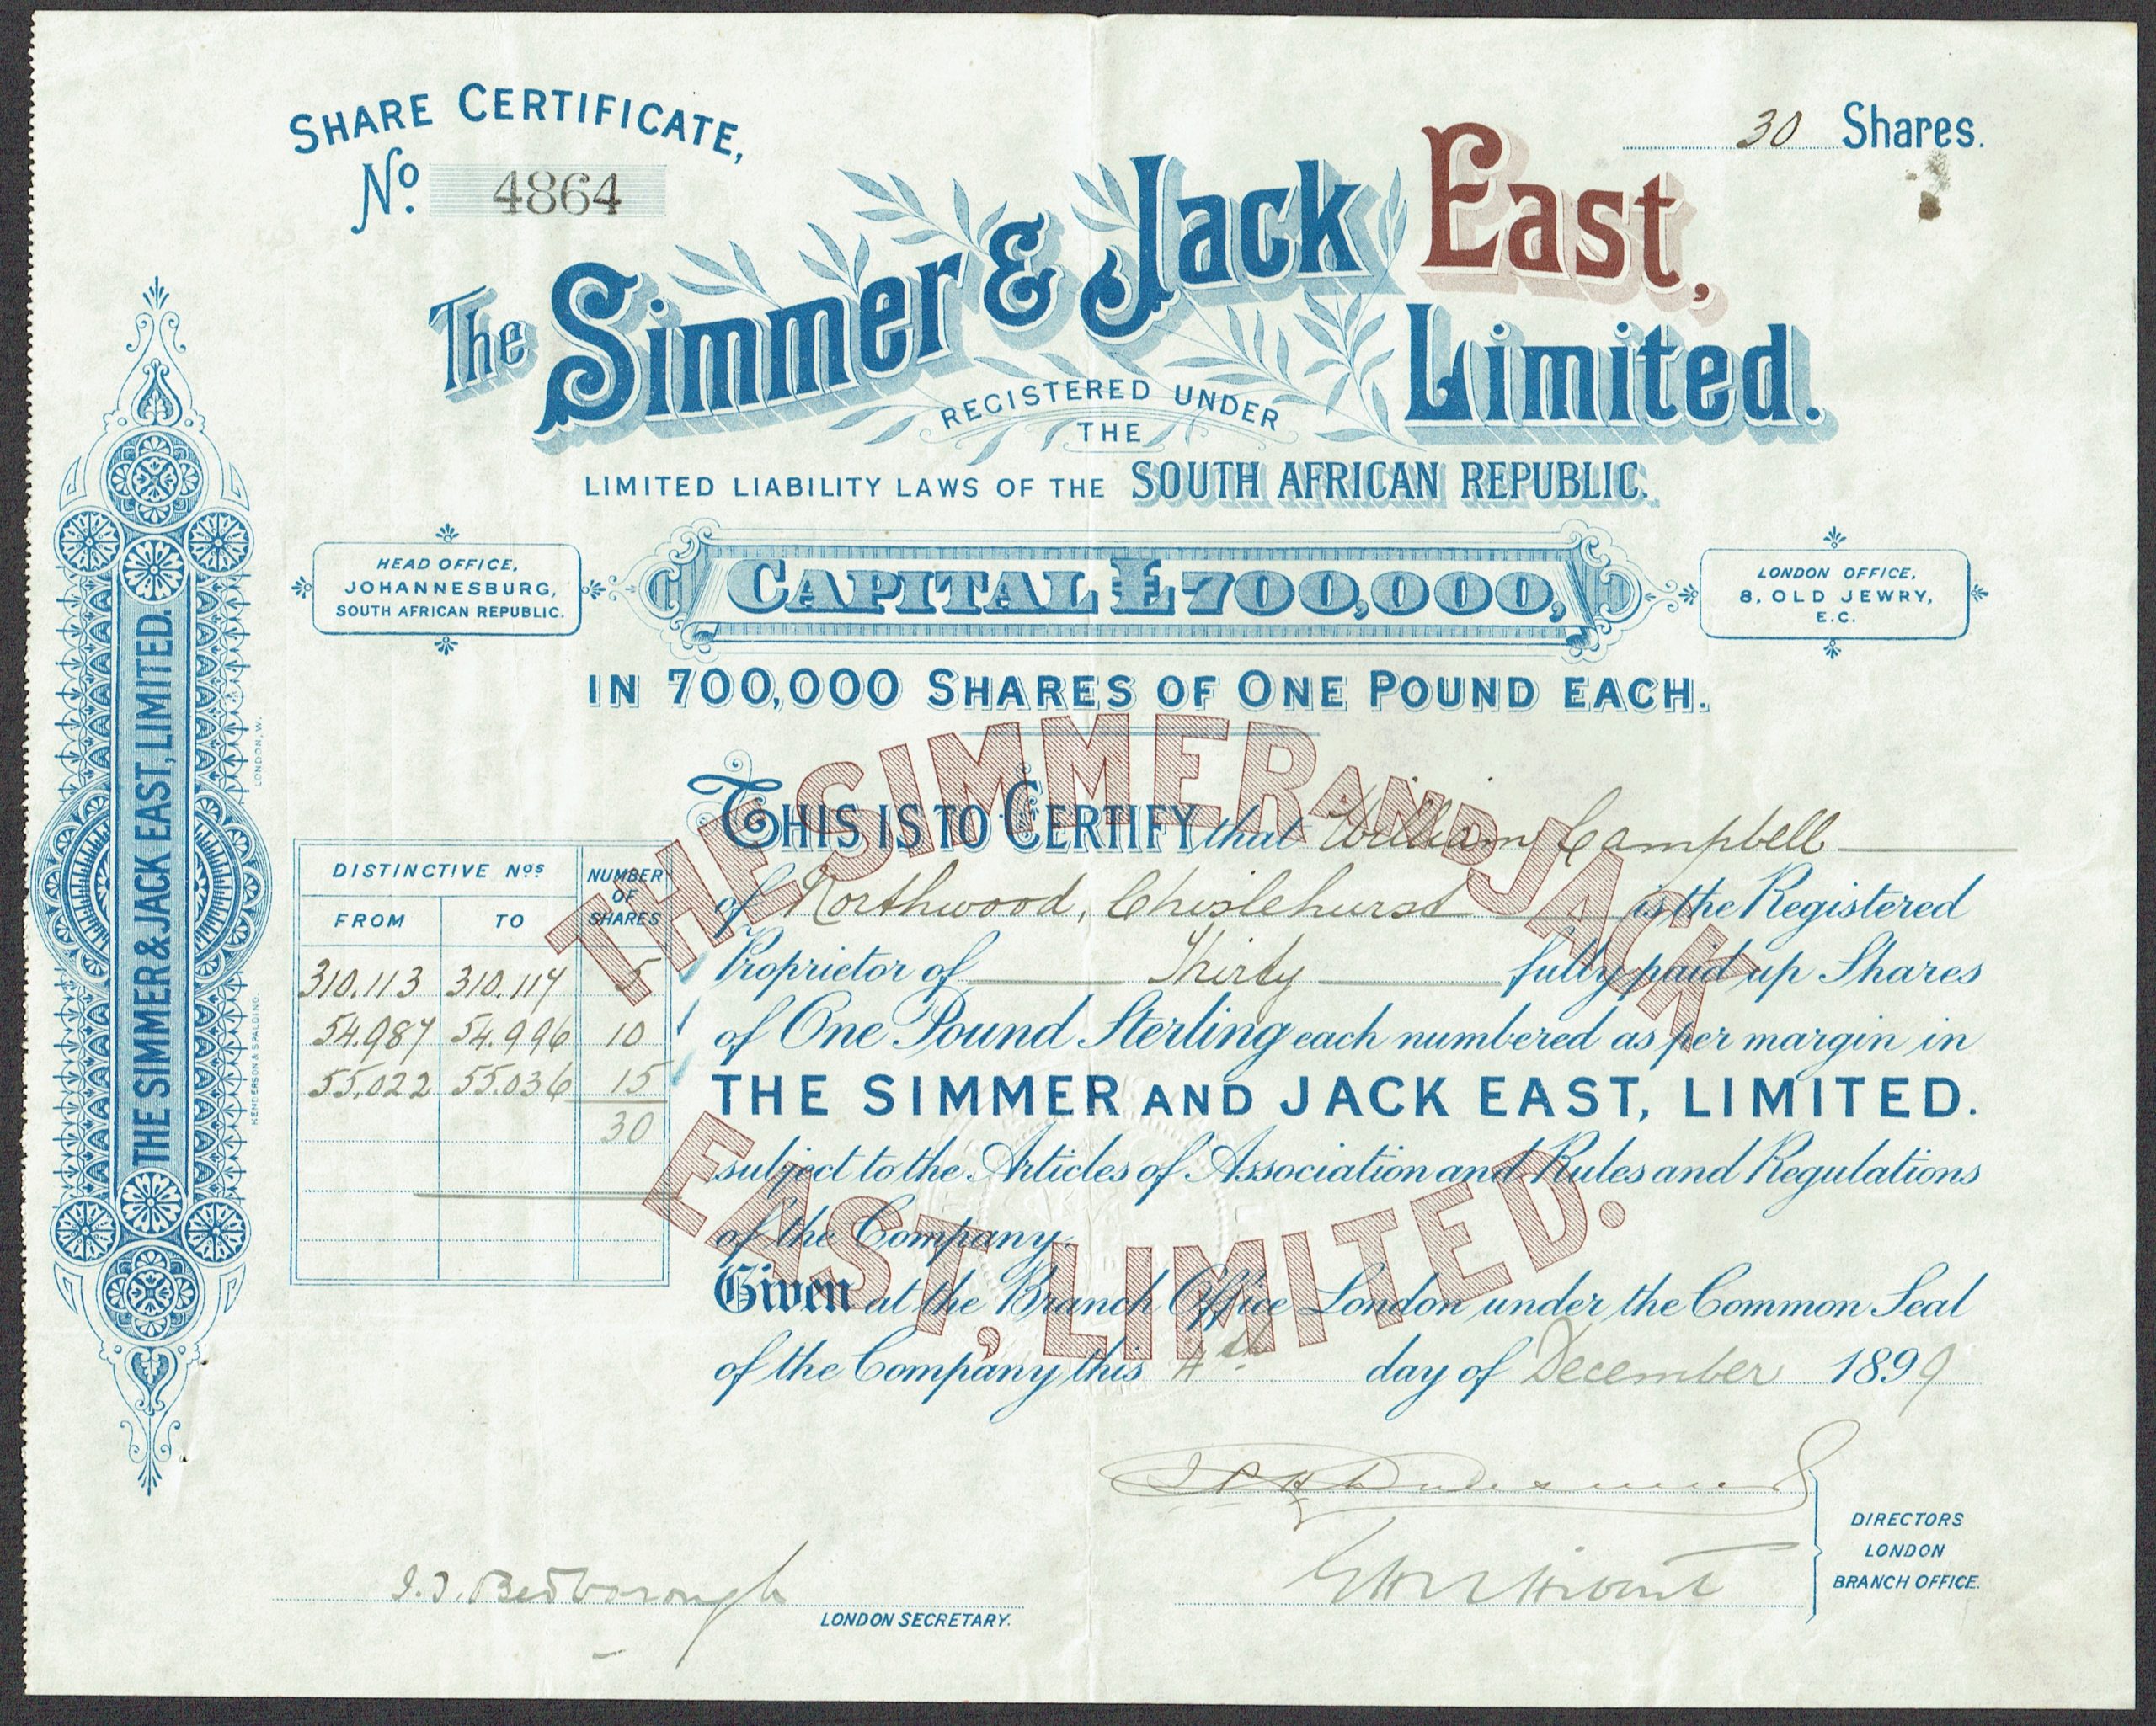 SHARE CERTIFICATE,
No. 4864
30 Shares.
The Simmer & Jack East,
Limited.
REGISTERED UNDER
THE
LIMITED LIABILITY LAWS OF THE SOUTH AFRICAN REPUBLIC.
HEAD OFFICE,
JOHANNESBURG,
SOUTH AFRICAN REPUBLIC.
CAPITAL £700,000,
LONDON OFFICE,
8, OLD JEWRY,
E.C.
IN 700,000 SHARES OF ONE POUND EACH.
THE SIMMER AND JACK
EAST, LIMITED.
THE SIMMER & JACK EAST, LIMITED.
HENDERSON & SPALDING. LONDON, W.
DISTINCTIVE Nos NUMBER OF SHARES
FROM TO
310.113 310.117 5
54.987 54.996 10
55.022 55.036 15
30
THIS IS TO CERTIFY that William Campbell
of Northwood, Chislehurst is the Registered
Proprietor of Thirty fully paid up Shares
of One Pound Sterling each numbered as per margin in
THE SIMMER AND JACK EAST, LIMITED.
subject to the Articles of Association and Rules and Regulations
of the Company.
Given at the Branch Office London under the Common Seal
of the Company this 4th day of December 1899
DIRECTORS
LONDON
BRANCH OFFICE.
Bedborough
LONDON SECRETARY.